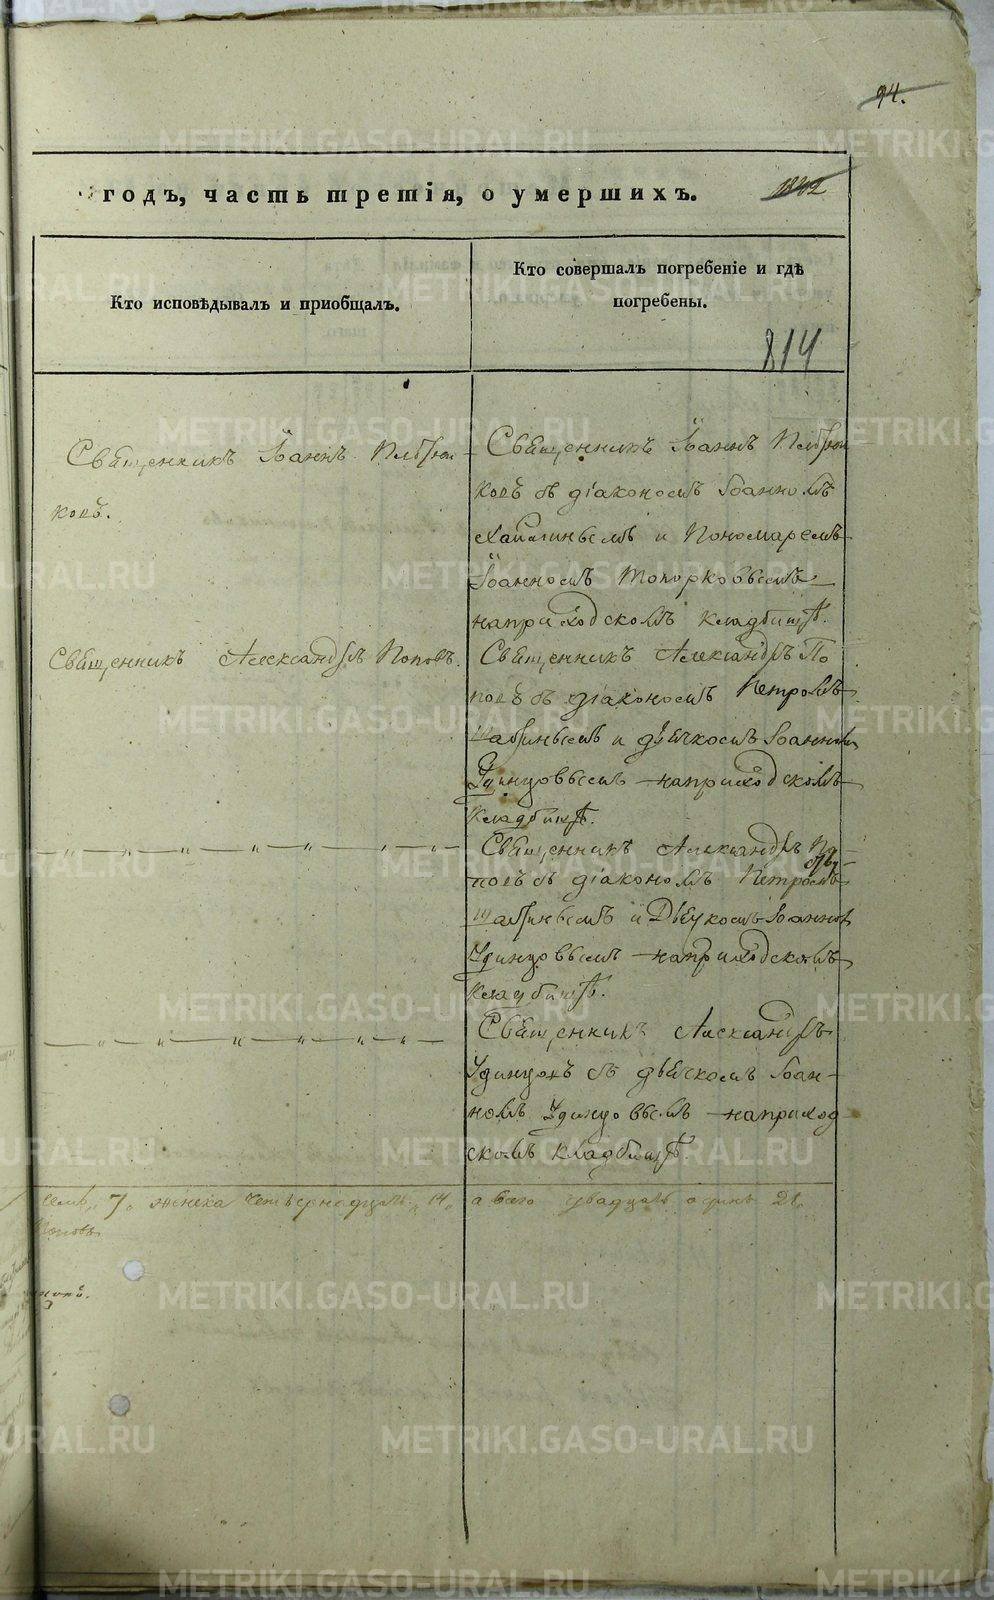 94.
годъ, часть третія, о умершихъ. 1842
Кто исповѣдывалъ и приобщалъ.
Кто совершалъ погребеніе и гдѣ
погребены.
814
Священникъ Іоаннъ
ковъ.
Священникъ Іоаннъ
ковъ съ діакономъ Іоанномъ
и Пономаремъ
Іоанномъ Топорковымъ
на приходскомъ кладбищѣ.
Священникъ Александръ Поповъ.
Священникъ Александръ По
повъ съ діакономъ Петромъ
и дьячкомъ Іоанномъ
Удинцовымъ на приходскомъ
кладбищѣ.
Священникъ Александръ По
повъ съ діакономъ Петромъ
и Дьячкомъ Іоанном
Удинцовымъ на приходскомъ
кладбищѣ.
Священникъ Александръ
Удинцовъ съ дьячкомъ Іоан-
номъ Удинцовымъ на приход
скомъ кладбищѣ.
семь 7, женска четырнадцать 14, а всего двадцать одинъ 21.
Поповъ
METRIKI.GASO-URAL.RU